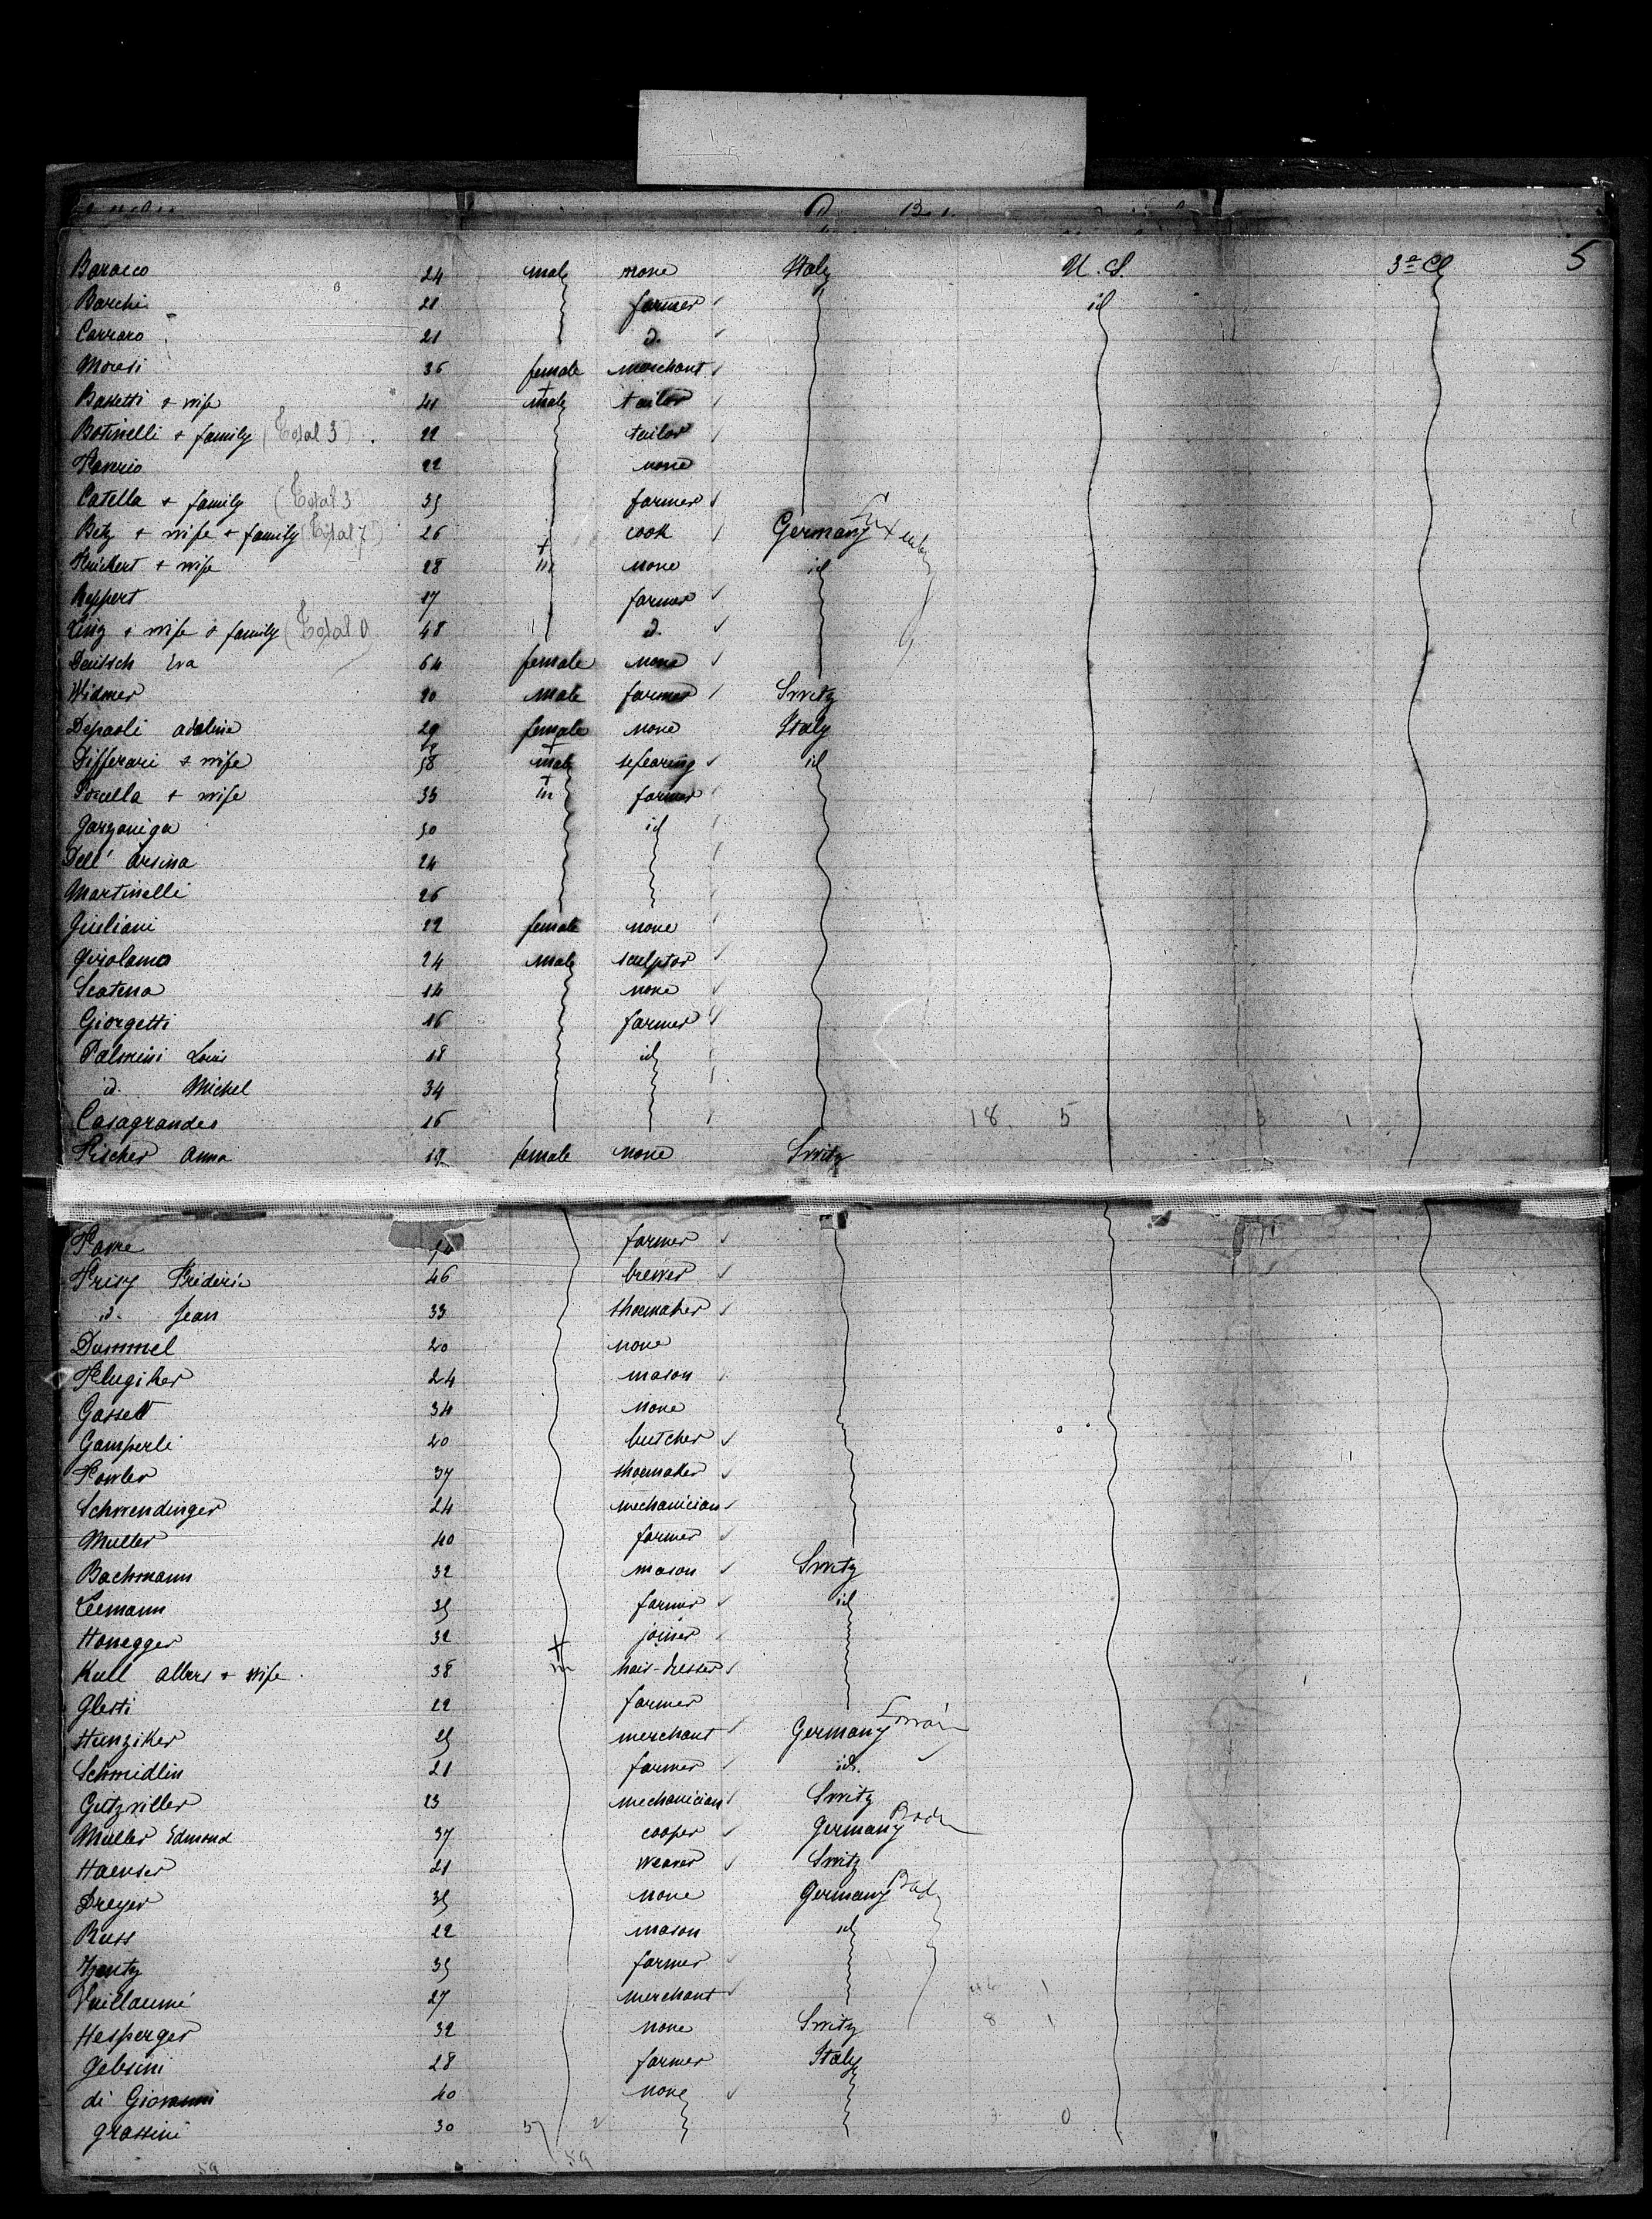 5
Baracco 24 male none Italy U. S. 3ª Cl
Barchi 21 farmer id
Carraro 21 d.
Moresi 36 female merchant
Bassetti + wife 41 male tailor
Botinelli + family (Total 3) 22 tailor
22 none
Catella + family (Total 3 35 farmer
Betz + wife + family (Total 7) 26 cook Germany
+ wife 28 m none id
Reppert 17 farmer
+ wife & family (Total 48 d.
Deutsch Eva 64 female none
Widmer 20 male farmer Switz
Depaoli Adeline 29 female none Italy
Differari & wife 58 male id
Porcella + wife 33 m farmer
Garzoniga 50 id
Dell' Orsina 24
Martinelli 26
Giuliani 22 female none
Girolamo 24 male sculptor
Scatena 14 none
Giorgetti 16 farmer
Palmini Louis 18 id
id. Michel 34
Casagrandes 16 18 5
Fischer Anna 19 female none Switz
Favre farmer
Frey Frideric 46 brewer
id. Jean 33 shoemaker
Dummel 20 none
Flugiker 24 mason
Gasset 34 none
Gamperli 20 butcher
Fowler 37 shoemaker
Schwendinger 24 mechanician
Muller 40 farmer
Bachmann 32 mason Switz
Leemann 35 farmer id
Honegger 32 joiner
Kull Albert + wife 38 m hair-dresser
Glesti 22 farmer
Hunziker 25 merchant Germany
Schmidlin 21 farmer id.
Gutzviller 23 mechanician Switz
Muller Edmond 37 cooper Germany Bade
Haenser 21 weaver Switz
Dreyer 35 none Germany Bade
Russ 22 mason id
35 farmer
Vuillaume 27 merchant
Hesperger 32 none Switz 8 1
Gebsini 28 farmer Italy
di Giovanni 40 none
Grassini 30 0
59 59